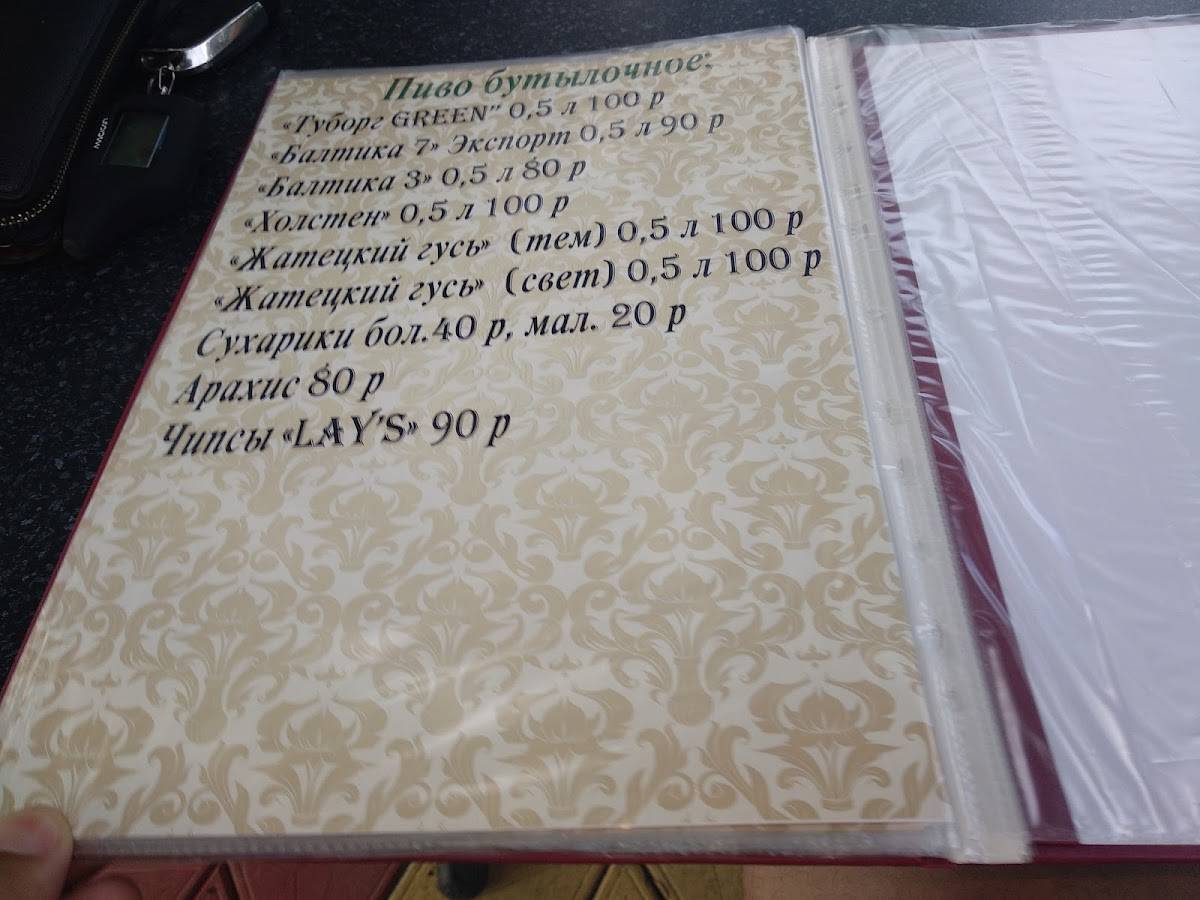 Пиво бутылочное:
«Туборг GREEN" 0,5 л 100 р
«Балтика 7» Экспорт 0,5 л 90 р
«Балтика 3» 0,5 л 80 р
«Холстен» 0,5 л 100 р
«Жатецкий гусь» (тем) 0,5 л 100 р
«Жатецкий гусь» (свет) 0,5 л 100 р
Сухарики бол.40 р, мал. 20 р
Арахис 80 р
Чипсы «LAY'S» 90 р